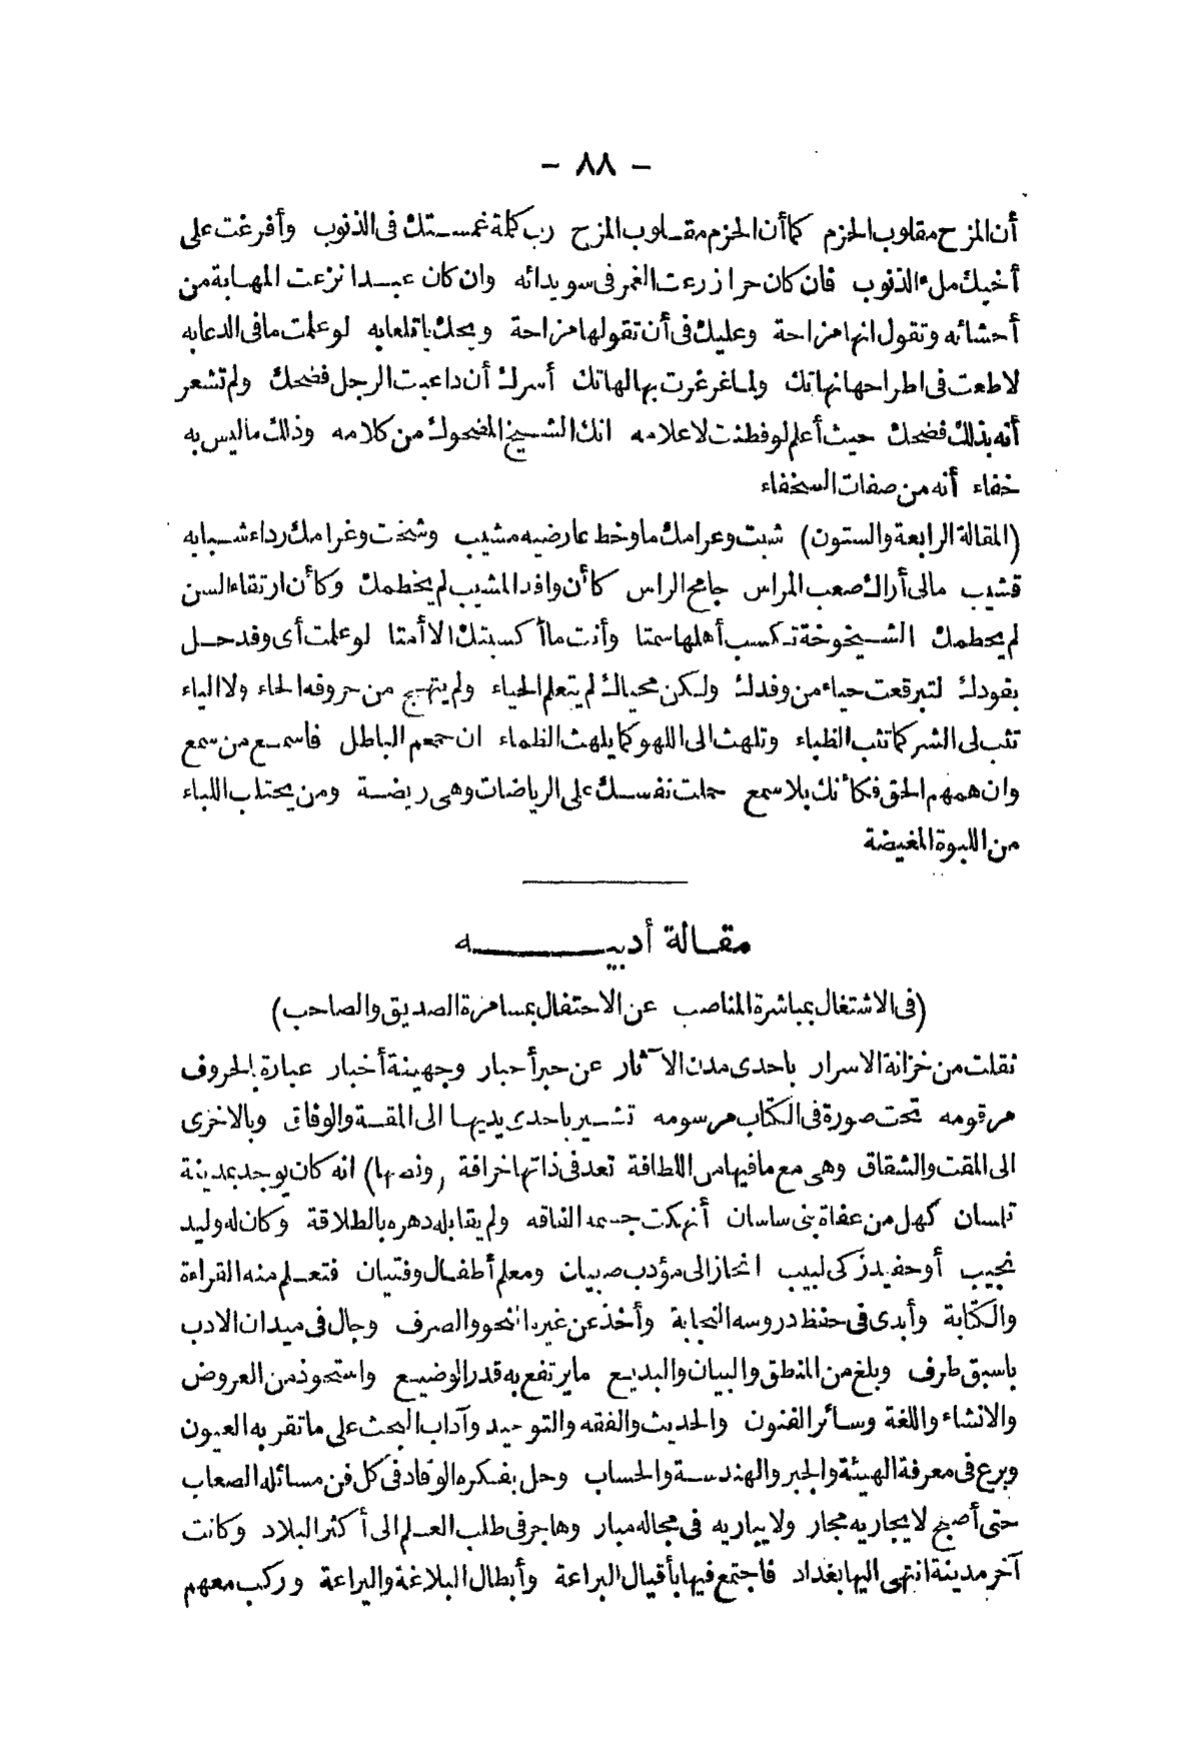 - ٨٨ -
أن المزح مقلوب الحزم كما أن الحزم مقلوب المزح رب كلمة غمستك فى الذنوب وأفرغت على
أخيك ملء الذنوب فان كان حرا زرعت الغمر فى سويدائه وان كان عبدا نزعت المهابة من
أحشائه وتقول انها مزاحة وعليك فى أن تقولها مزاحة ويحك ياتلعابه لو علمت ما فى الدعابه
لاطعت فى اطراحها نهاتك ولما غرغرت بها لهاتك أسرك أن داعبت الرجل فضحك ولم تشعر
أنه بذلك فضحك حيث أعلم لو فطنت لاعلامه انك الشيخ المضحوك من كلامه وذلك ما ليس به
خفاء أنه من صفات السخفاء
(المقالة الرابعة والستون) شبت وعرامك ما وخط عارضيه مشيب وشخت وغرامك رداء شبابه
قشيب مالى أراك صعب المراس جامح الراس كأن وافد المشيب لم يخطمك وكأن ارتقاء السن
لم يحطمك الشيخوخة تكسب أهلها سمتا وأنت ما أكسبتك الا أمتا لو علمت أى وفد حل
بفودك لتبرقعت حياء من وفدك ولكن محياك لم يتعلم الحياء ولم يتهج من حروفه الحاء ولا الياء
تثب لى الشر كما تثب الظباء وتلهث الى اللهو كما يلهث الظماء ان جمعم الباطل فاسمع من سمع
وان همهم الحق فكأنك بلا سمع حملت نفسك على الرياضات وهى ريضة ومن يحتلب اللباء
من اللبوة المغيضة
مقالة أدبيه
(فى الاشتغال بمباشرة المناصب عن الاحتفال بمسامرة الصديق والصاحب)
نقلت من خزانة الاسرار باحدى مدن الآثار عن حبر أحبار وجهينة أخبار عبارة بالحروف
مرقومه تحت صورة فى الكتاب مرسومه تشير باحدى يديها الى المقة والوفاق وبالاخرى
الى المقت والشقاق وهى مع ما فيها من اللطافة تعد فى ذاتها خرافة (ونصها) انه كان يوجد بمدينة
تلمسان كهل من عفاة بنى ساسان أنهكت جسمه الفاقه ولم يقابله دهره بالطلاقة وكان له وليد
نجيب أو حفيد زكى لبيب انحاز الى مؤدب صبيان ومعلم أطفال وفتيان فتعلم منه القراءة
والكتابة وأبدى فى حفظ دروسه النجابة وأخذ عن غيره النحو والصرف وجال فى ميدان الادب
باسبق طرف وبلغ من المنطق والبيان والبديع ما يرتفع به قدر الوضيع واستحوذ من العروض
والانشاء واللغة وسائر الفنون والحديث والفقه والتوحيد وآداب البحث على ما تقر به العيون
وبرع فى معرفة الهيئة والجبر والهندسة والحساب وحل بفكره الوقاد فى كل فن مسائله الصعاب
حتى أصبح لا يجاريه مجار ولا يباريه فى مجاله مبار وهاجر فى طلب العلم الى أكثر البلاد وكانت
آخر مدينة انتهى اليها بغداد فاجتمع فيها بأقيال البراعة وأبطال البلاغة واليراعة وركب معهم